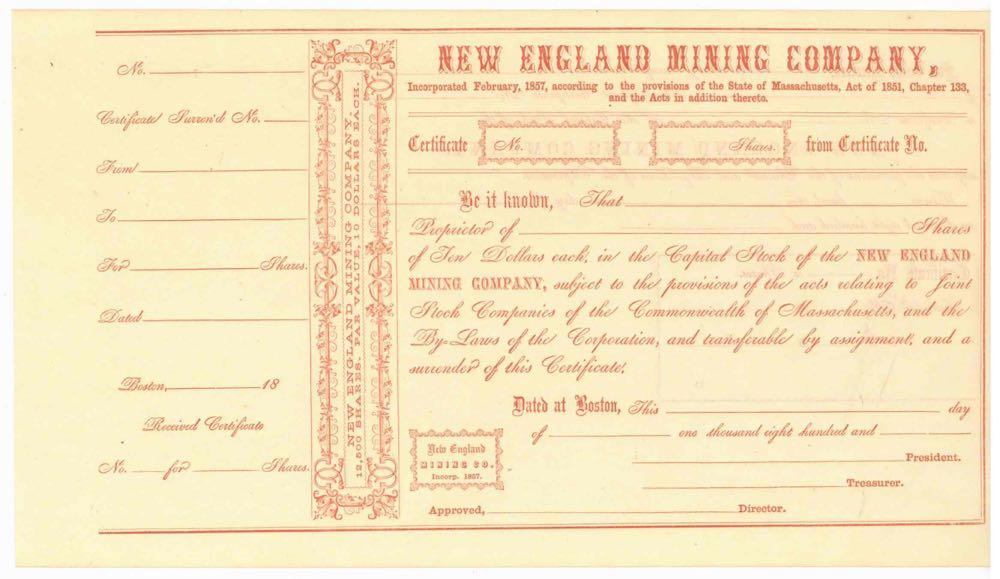 No.
Certificate Surren'd No.
From
To
For Shares.
Dated
Boston, 18
Received Certificate
No. for Shares.
NEW ENGLAND MINING COMPANY.
12,500 SHARES. PAR VALUE, 10 DOLLARS EACH.
NEW ENGLAND MINING COMPANY,
Incorporated February, 1857, according to the provisions of the State of Massachusetts, Act of 1851, Chapter 133,
and the Acts in addition thereto.
Certificate No. Shares. from Certificate No.
Be it known, That
Proprietor of Shares
of Ten Dollars each, in the Capital Stock of the NEW ENGLAND
MINING COMPANY, subject to the provisions of the acts relating to Joint
Stock Companies of the Commonwealth of Massachusetts, and the
By-Laws of the Corporation, and transferable by assignment, and a
surrender of this Certificate.
Dated at Boston, This day
of one thousand eight hundred and
New England
MINING CO.
Incorp. 1857.
President.
Treasurer.
Approved, Director.